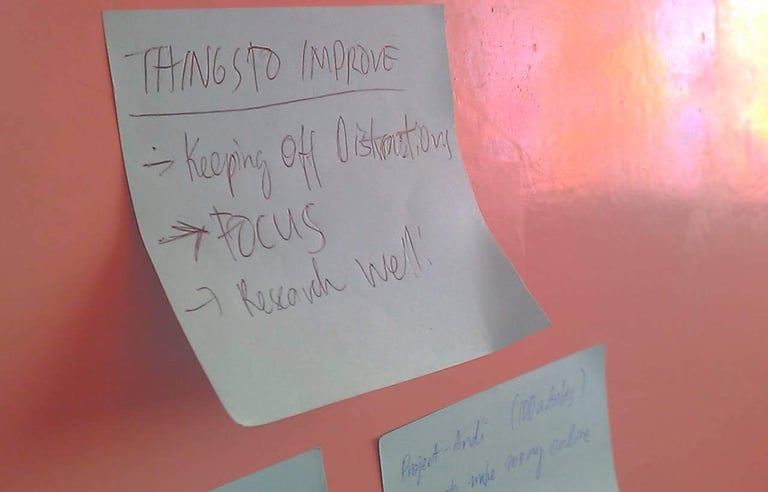 THINGS TO IMPROVE
→ Keeping Off Distractions
→ FOCUS
→ Research Well!
Project-Andi
to make money online